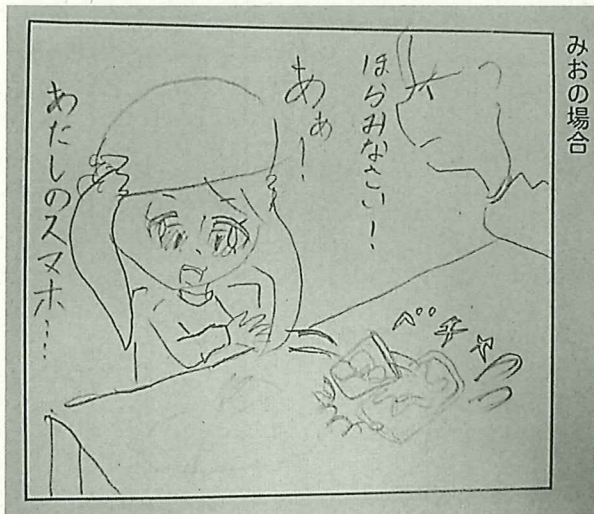 みおの場合
ほらみなさい!
あぁー!
あたしのスマホ…
ベチャッ